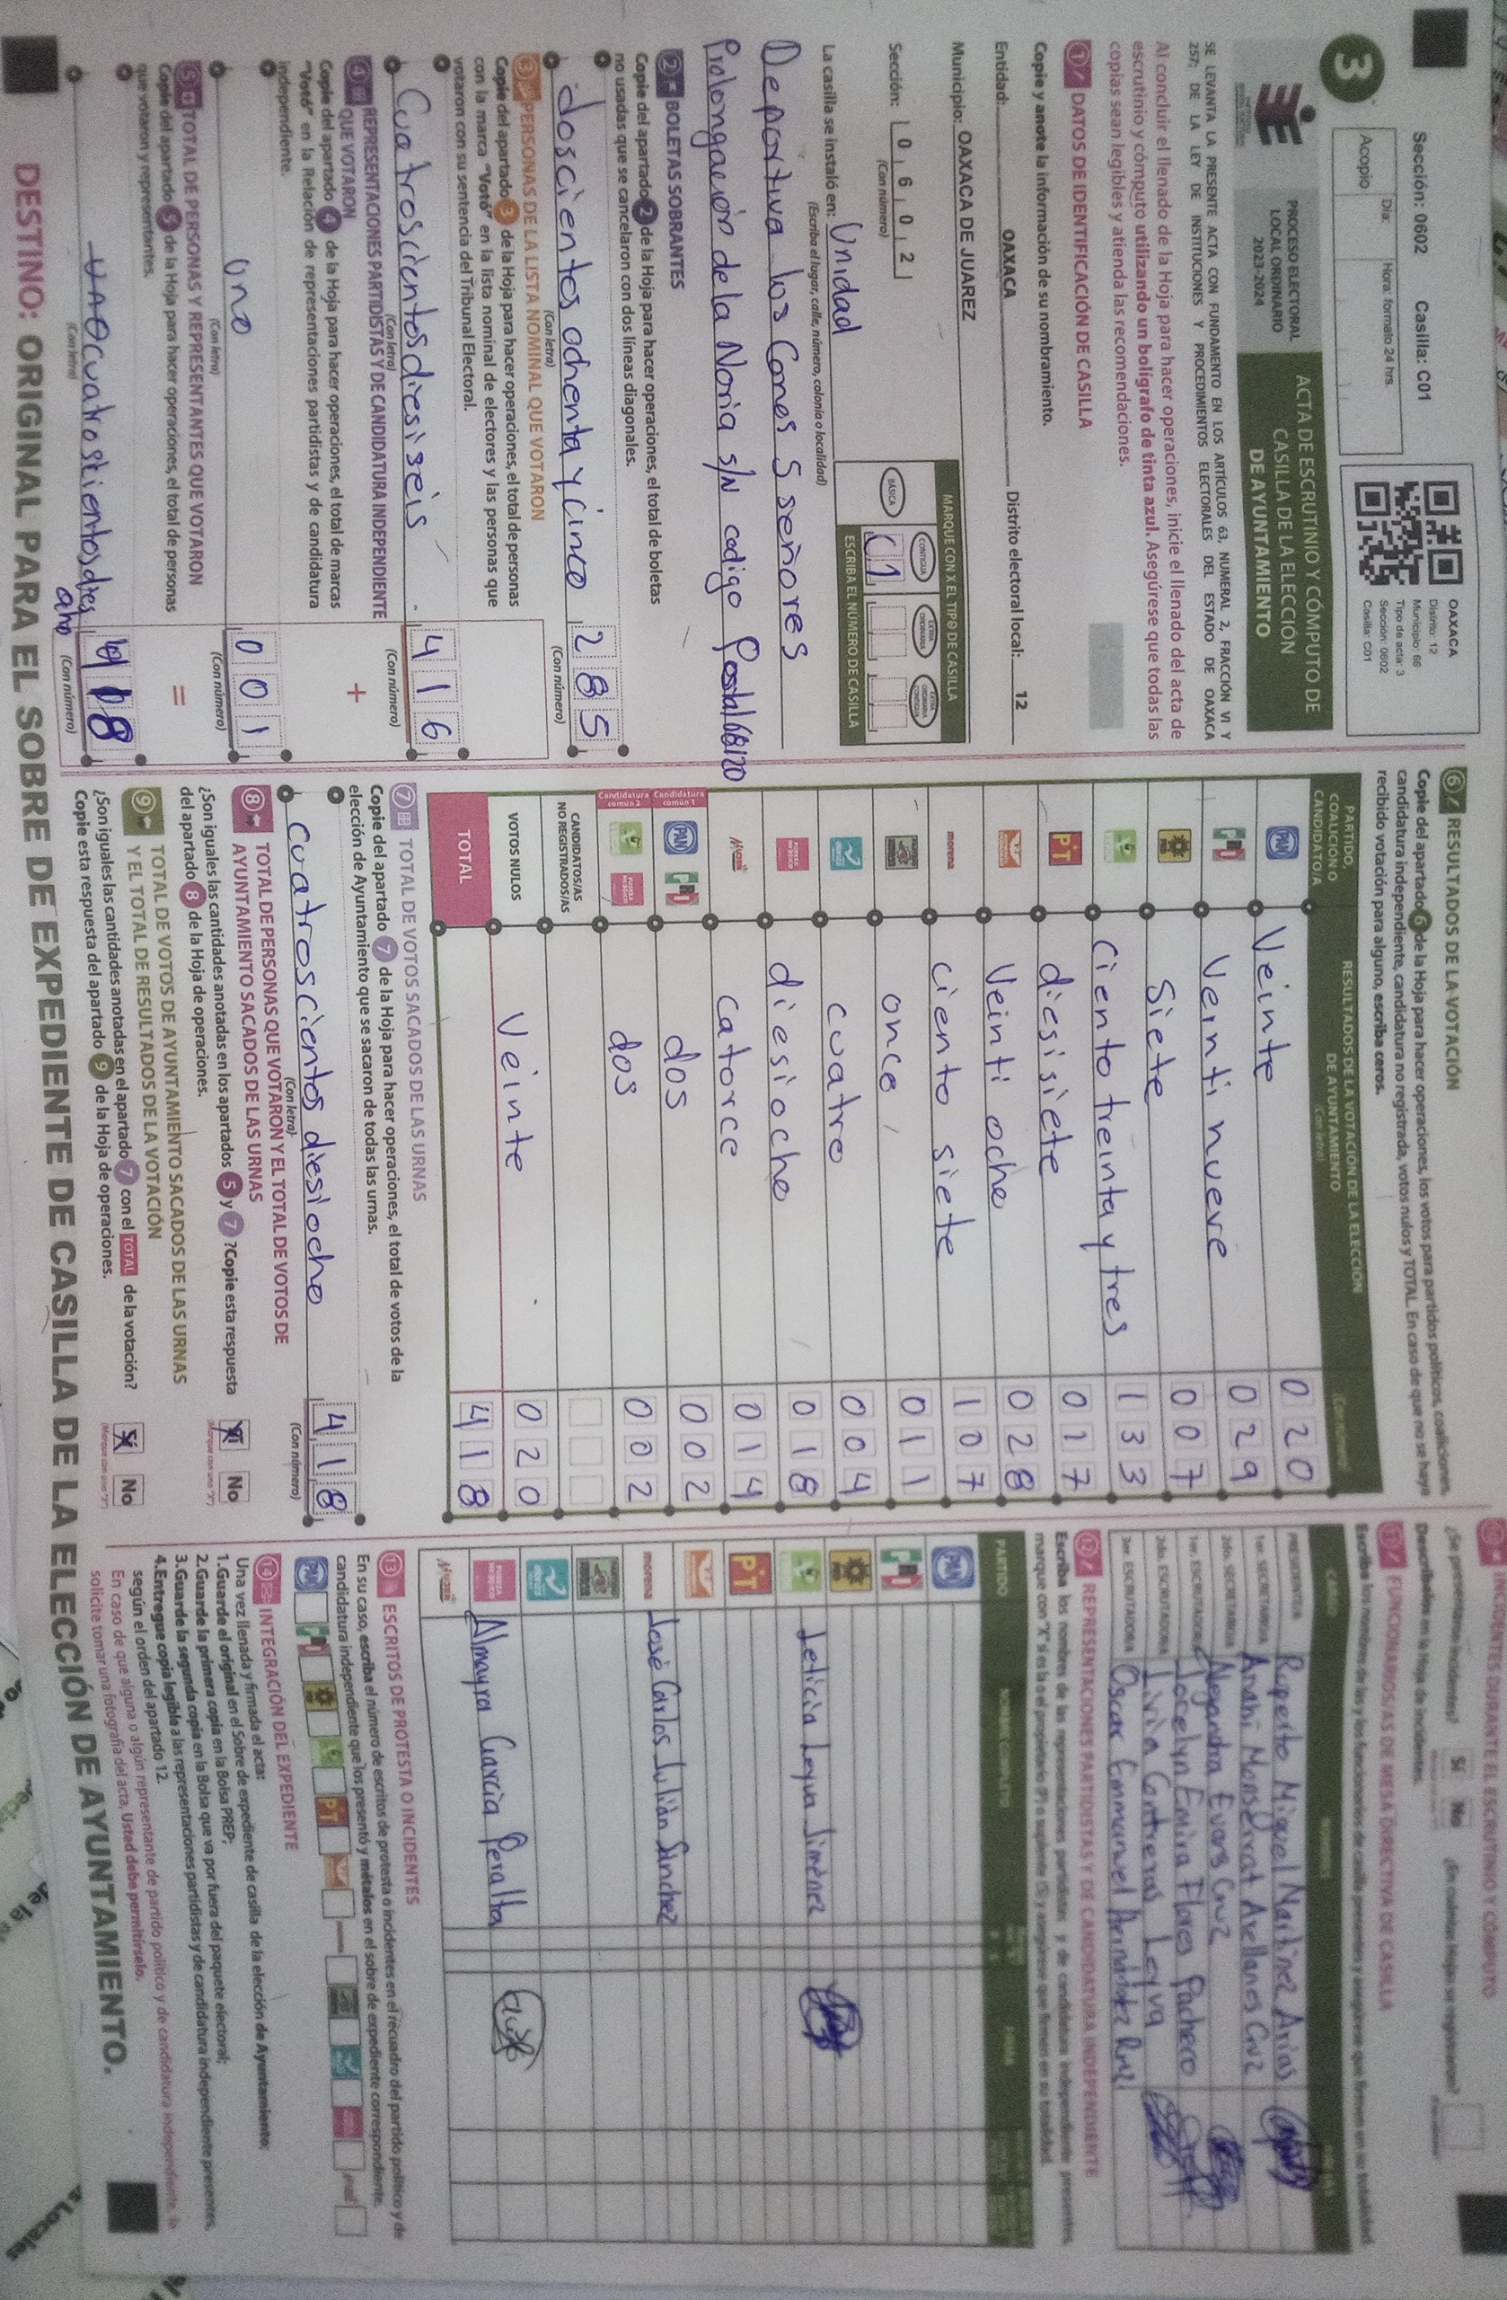 Sección: 0602 Casilla: C01
Acopio
Día:
Hora: formato 24 hrs.
OAXACA
Distrito: 12
Municipio: 66
Tipo de acta: 3
Sección: 0602
Casilla: C01
3
PROCESO ELECTORAL
LOCAL ORDINARIO
2023-2024
ACTA DE ESCRUTINIO Y CÓMPUTO DE
CASILLA DE LA ELECCIÓN
DE AYUNTAMIENTO
SE LEVANTA LA PRESENTE ACTA CON FUNDAMENTO EN LOS ARTÍCULOS 63, NUMERAL 2, FRACCIÓN VI Y
257; DE LA LEY DE INSTITUCIONES Y PROCEDIMIENTOS ELECTORALES DEL ESTADO DE OAXACA
Al concluir el llenado de la Hoja para hacer operaciones, inicie el llenado del acta de
escrutinio y cómputo utilizando un bolígrafo de tinta azul. Asegúrese que todas las
copias sean legibles y atienda las recomendaciones.
1 DATOS DE IDENTIFICACIÓN DE CASILLA
Copie y anote la información de su nombramiento.
Entidad: OAXACA Distrito electoral local: 12
Municipio: OAXACA DE JUAREZ
Sección: 0 6 0 2
(Con número)
MARQUE CON X EL TIPO DE CASILLA
BÁSICA
CONTIGUA
C 1
ESCRIBA EL NÚMERO DE CASILLA
La casilla se instaló en: Unidad
(Escriba el lugar, calle, número, colonia o localidad)
Deportiva los Cones 5 señores
Prolongación de la Noria s/N codigo Postal 68120
2 BOLETAS SOBRANTES
Copie del apartado 2 de la Hoja para hacer operaciones, el total de boletas
no usadas que se cancelaron con dos líneas diagonales.
doscientos ochenta y cinco 2 8 5
(Con letra) (Con número)
3 PERSONAS DE LA LISTA NOMINAL QUE VOTARON
Copie del apartado 3 de la Hoja para hacer operaciones, el total de personas
con la marca "Votó" en la lista nominal de electores y las personas que
votaron con su sentencia del Tribunal Electoral.
Cuatroscientos diesiseis 4 1 6
(Con letra) (Con número)
4 REPRESENTACIONES PARTIDISTAS Y DE CANDIDATURA INDEPENDIENTE
QUE VOTARON
+
Copie del apartado 4 de la Hoja para hacer operaciones, el total de marcas
"Votó" en la Relación de representaciones partidistas y de candidatura
independiente.
Uno 0 0 1
(Con letra) (Con número)
5 TOTAL DE PERSONAS Y REPRESENTANTES QUE VOTARON
=
Copie del apartado 5 de la Hoja para hacer operaciones, el total de personas
que votaron y representantes.
(Con letra) (Con número)
6 RESULTADOS DE LA VOTACIÓN
Copie del apartado 6 de la Hoja para hacer operaciones, los votos para partidos políticos, coaliciones,
candidatura independiente, candidatura no registrada, votos nulos y TOTAL. En caso de que no se haya
recibido votación para alguno, escriba ceros.
PARTIDO,
COALICIÓN O
CANDIDATO/A
RESULTADOS DE LA VOTACIÓN DE LA ELECCIÓN
DE AYUNTAMIENTO
(Con letra)
(Con número)
PAN Veinte 0 2 0
PRI Veinti nueve 0 2 9
Siete 0 0 7
Ciento treinta y tres 1 3 3
PT diesisiete 0 1 7
Veinti ocho 0 2 8
morena Ciento siete 1 0 7
once 0 1 1
cuatro 0 0 4
diesiocho 0 1 8
catorce 0 1 4
Candidatura común 1 PAN PRI dos 0 0 2
Candidatura común 2 dos 0 0 2
CANDIDATOS/AS
NO REGISTRADOS/AS
VOTOS NULOS Veinte 0 2 0
TOTAL 4 1 8
7 TOTAL DE VOTOS SACADOS DE LAS URNAS
Copie del apartado 7 de la Hoja para hacer operaciones, el total de votos de la
elección de Ayuntamiento que se sacaron de todas las urnas.
Cuatroscientos diesiocho 4 1 8
(Con letra) (Con número)
8 TOTAL DE PERSONAS QUE VOTARON Y EL TOTAL DE VOTOS DE
AYUNTAMIENTO SACADOS DE LAS URNAS
¿Son iguales las cantidades anotadas en los apartados 5 y 7 ? Copie esta respuesta
del apartado 8 de la Hoja de operaciones.
Sí No
9 TOTAL DE VOTOS DE AYUNTAMIENTO SACADOS DE LAS URNAS
Y EL TOTAL DE RESULTADOS DE LA VOTACIÓN
¿Son iguales las cantidades anotadas en el apartado 7 con el TOTAL de la votación?
Copie esta respuesta del apartado 9 de la Hoja de operaciones.
Sí No
INCIDENTES DURANTE EL ESCRUTINIO Y CÓMPUTO
¿Se presentaron incidentes? Sí No ¿En cuántas Hojas se registraron?
Descríbalos en la Hoja de incidentes.
FUNCIONARIOS/AS DE MESA DIRECTIVA DE CASILLA
Escriba los nombres de las y los funcionarios de casilla presentes y asegúrese que firmen en su totalidad.
CARGO
PRESIDENTE/A Ruperto Miguel Martinez Arias
1er. SECRETARIO/A Anahi Monserrat Arellanes Cruz
2do. SECRETARIO/A Alejandra Evans Cruz
1er. ESCRUTADOR/A Jocelyn Emira Flores Pacheco
2do. ESCRUTADOR/A Livia Contreras Leyva
3er. ESCRUTADOR/A Oscar Emmanuel Hernández Ruiz
12 REPRESENTACIONES PARTIDISTAS Y DE CANDIDATURA INDEPENDIENTE
Escriba los nombres de las representaciones partidistas y de candidatura independiente presentes,
marque con "X" si es la o el propietario (P) o suplente (S) y asegúrese que firmen en su totalidad.
PARTIDO NOMBRE COMPLETO FIRMA
PAN
PRI
Leticia Leyva Jiménez
PT
morena José Carlos Julián Sánchez
Almayra García Peralta
13 ESCRITOS DE PROTESTA O INCIDENTES
En su caso, escriba el número de escritos de protesta o incidentes en el recuadro del partido político y de
candidatura independiente que los presentó y métalos en el sobre de expediente correspondiente.
14 INTEGRACIÓN DEL EXPEDIENTE
Una vez llenada y firmada el acta:
1.Guarde el original en el Sobre de expediente de casilla de la elección de Ayuntamiento;
2.Guarde la primera copia en la Bolsa PREP;
3.Guarde la segunda copia en la Bolsa que va por fuera del paquete electoral;
4.Entregue copia legible a las representaciones partidistas y de candidatura independiente presentes,
según el orden del apartado 12.
En caso de que alguna o algún representante de partido político y de candidatura independiente, la
solicite tomar una fotografía del acta, Usted debe permitírselo.
DESTINO: ORIGINAL PARA EL SOBRE DE EXPEDIENTE DE CASILLA DE LA ELECCIÓN DE AYUNTAMIENTO.